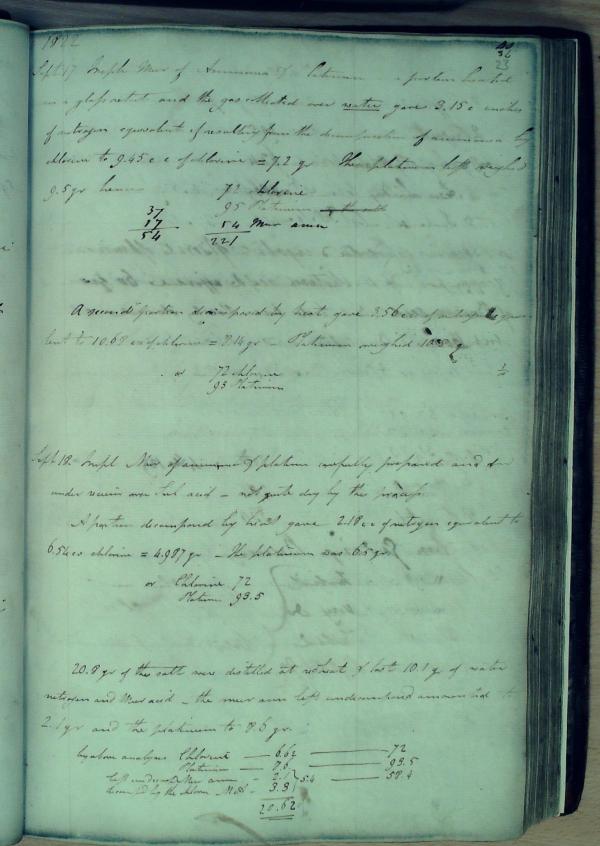 1822
36
23
Sept 17 Triple Mur of Ammonia & Platinum a portion heated
in a glass retort and the gas collected over water gave 3.15 c inches
of nitrogen equivalent if resulting from the decomposition of ammonia by
chlorine to 9.45 c c of chlorine = 7.2 gr The platinum left weighed
9.5 gr hence 72 chlorine
37 95 Platinum
17 54 Mur amm
54 221
A second portion decomposed by heat gave 3.56 c of nitrogen
lent to 10.68 c of chlorine = 8.14 gr Platinum weighed
or 72 chlorine
93 Platinum
Sept 18 Tripl Mur of ammonia & platina carefully prepared and
under receiver over Sul acid - not quite dry by the process
A portion decomposed by heat gave 2.18 c c of nitrogen equivalent to
6.54 c chlorine = 4.987 gr - The platinum was 6.5 gr
or Chlorine 72
Platinum 93.5
20.8 gr of the salt were distilled at red heat & lost 10.1 gr of water
nitrogen and Mur acid - the mur amm left undecomposed amounted to
2.1 gr and the platinum to 8.6 gr
by above analyses Chlorine — 6.62 — 72
Platinum — 8.6 — 93.5
left Mur amm - 2.1 } 5.4 — 58.4
by the chlorine 3.3
20.62